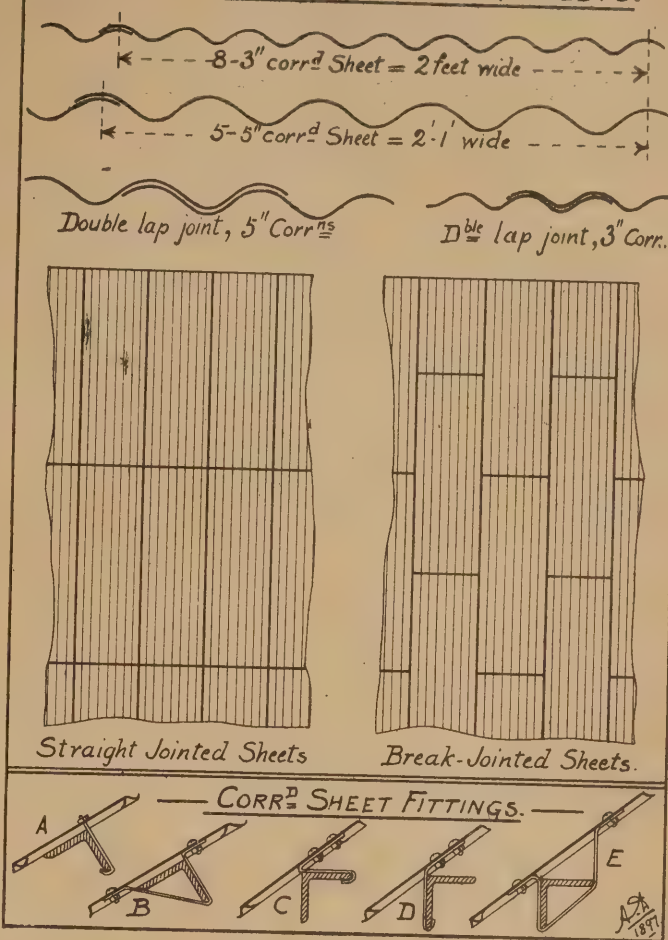 8-3" corrd Sheet = 2 feet wide
5-5" corrd Sheet = 2'-1' wide
Double lap joint, 5" Corrns
Dble lap joint, 3" Corr..
Straight Jointed Sheets
Break-Jointed Sheets.
— CORRD SHEET FITTINGS. —
A
B
C
D
E
1897